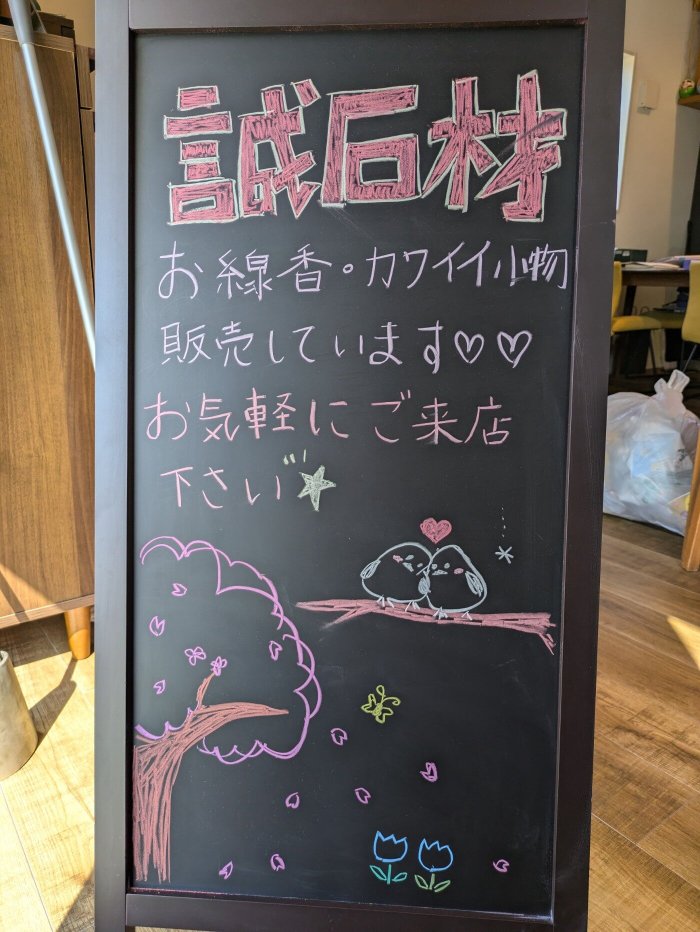 誠石材
お線香・カワイイ小物
販売しています♡♡
お気軽にご来店
下さい☆